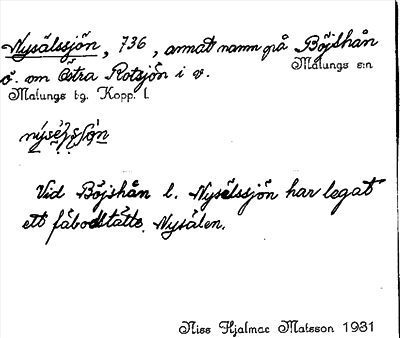 Nysälssjön, 736, annat namn på Böjshån
Malungs s:n
ö. om Östra Rotsjön i v.
Malungs tg. Kopp. l.
Vid Böjshån l. Nysälssjön har legat
ett fäbodställe, Nysälen.
Hjalmar Matsson 1931